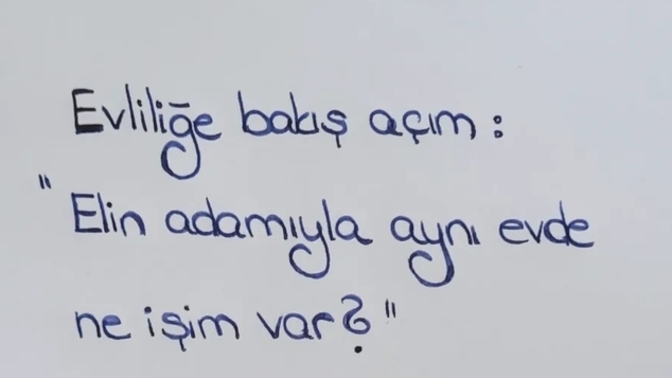 Evliliğe bakış açım :
" Elin adamıyla aynı evde
ne işim var? "